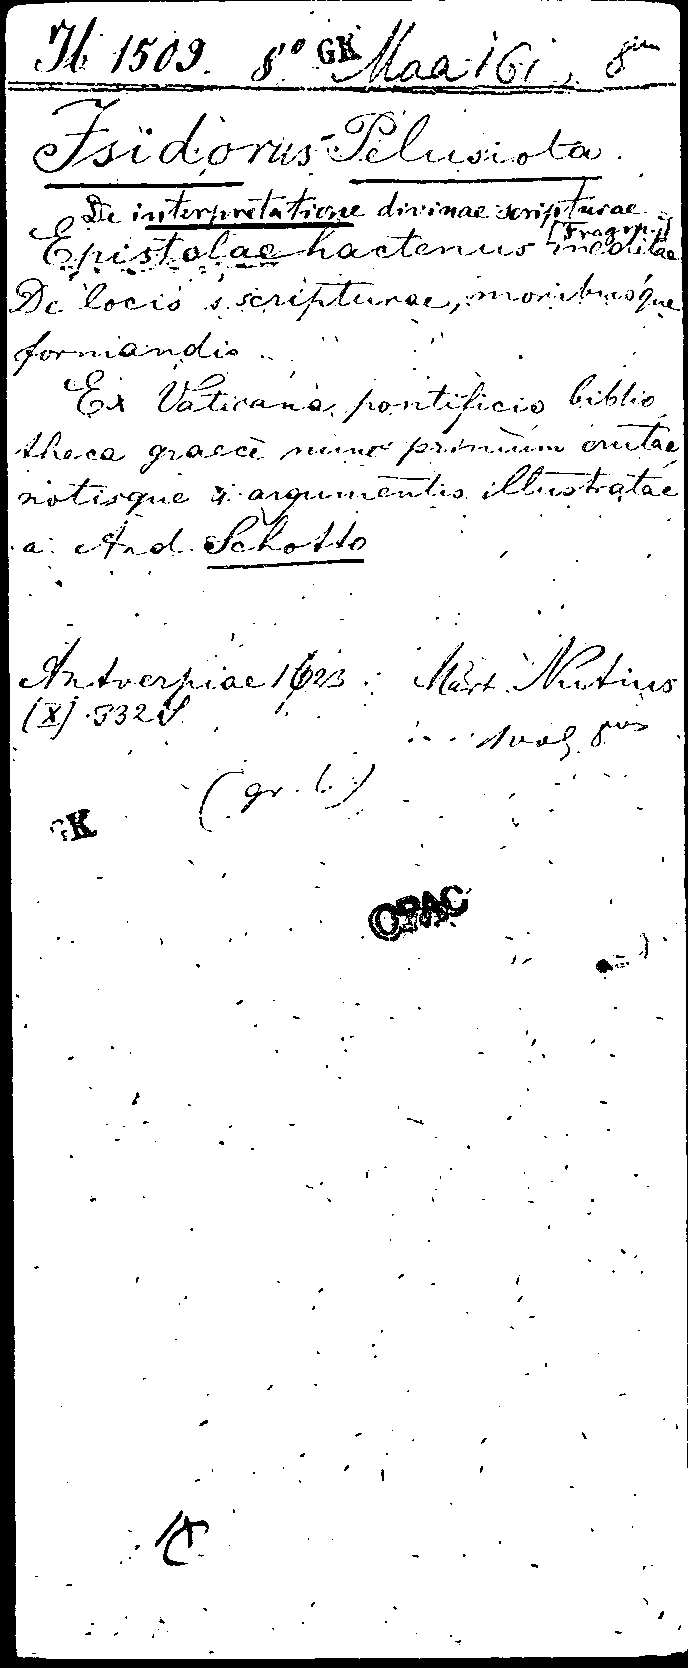 Th 1509. 8° GK Maa 161, 8um
Isidorus Pelusiota.
De interpretatione divinae scripturae
[Fragm.]
Epistolae hactenus ineditae
De locis s. scripturae, moribusque
formandis.
Ex Vaticana pontificis biblio
theca graecè nunc primùm erutae
notisque & argumentis illustratae
a And. Schotto
Antverpiae 1623. Mart. Nutius
[X] 332 S
1 vol. 8vo
(gr. l.)
GK
OPAC